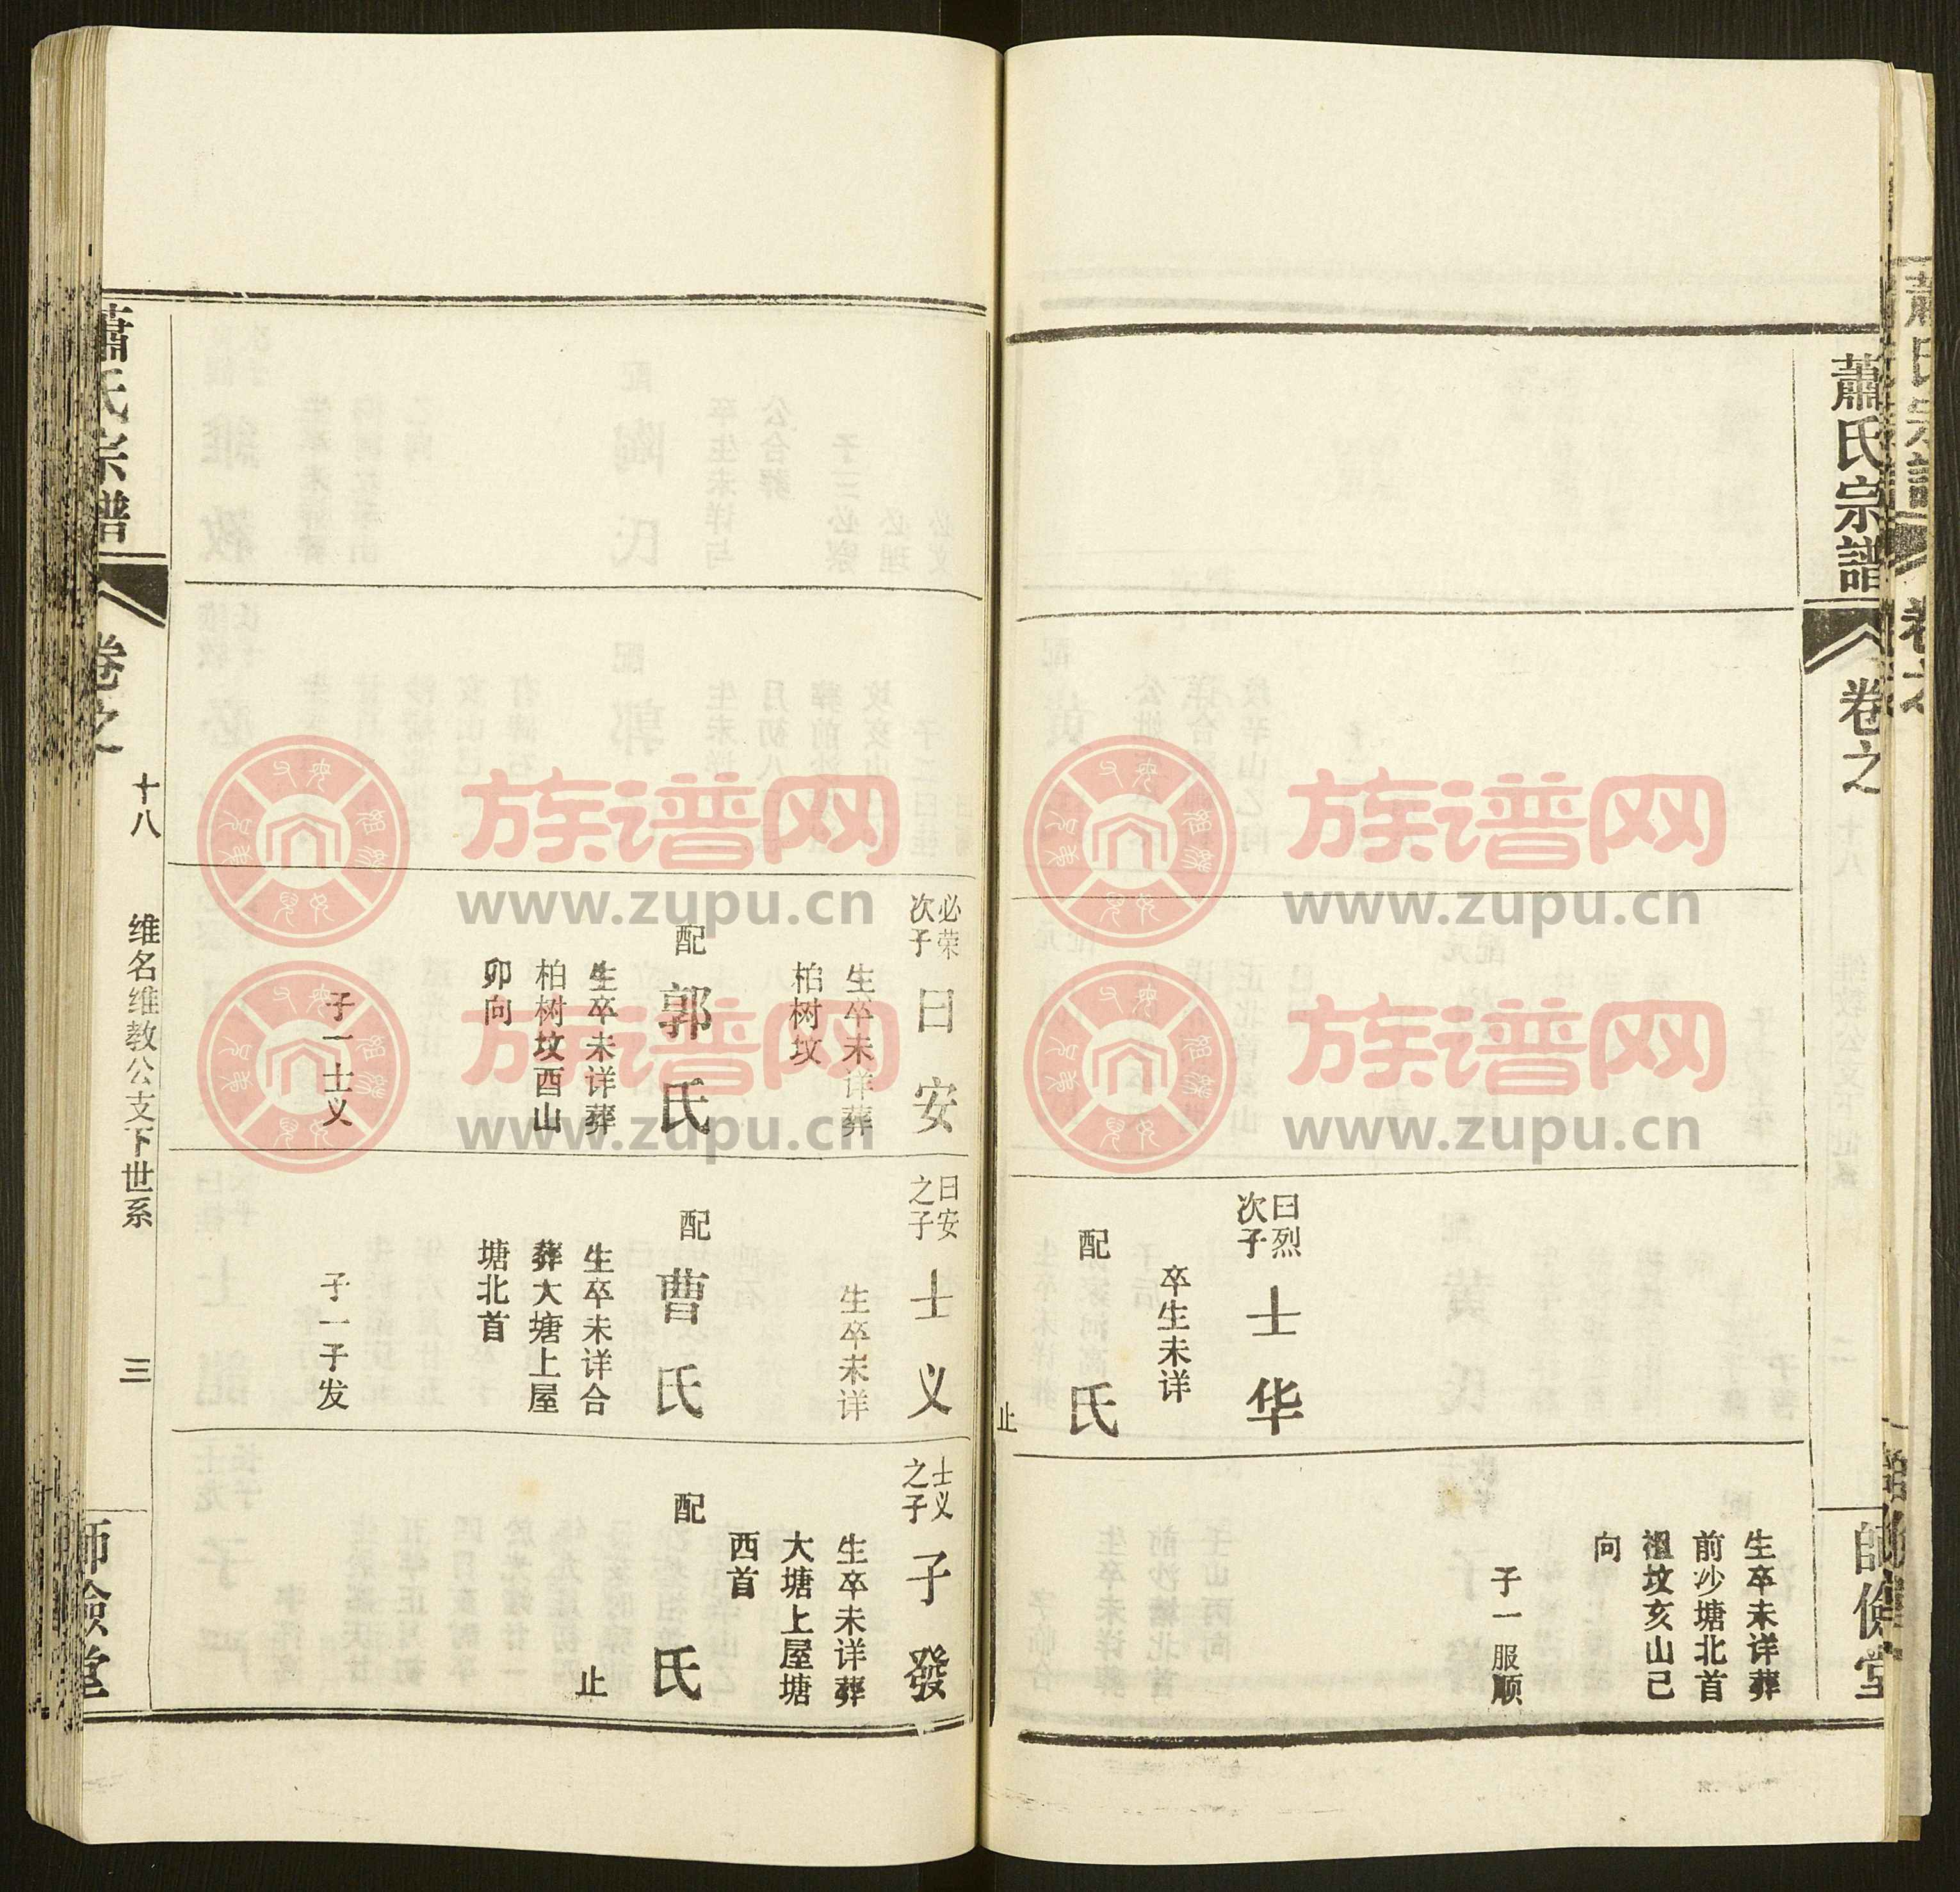 蕭氏宗譜
卷之
師儉堂
生卒未详葬
前沙塘北首
祖坟亥山已
向
子一服顺
曰烈
次子
士华
卒生未详
配
氏
止
必荣
次子
曰安
生卒未详葬
柏树坟
配
郭氏
生卒未详葬
柏树坟酉山
卯向
子一士义
曰安
之子
士义
生卒未详
配
曹氏
生卒未详合
葬大塘上屋
塘北首
子一子发
士义
之子
子發
生卒未详葬
大塘上屋塘
西首
配
氏
止
蕭氏宗譜
卷之
十八
维名维教公支下世系
三
師儉堂
族谱网
www.zupu.cn
族谱网
www.zupu.cn
族谱网
www.zupu.cn
族谱网
www.zupu.cn